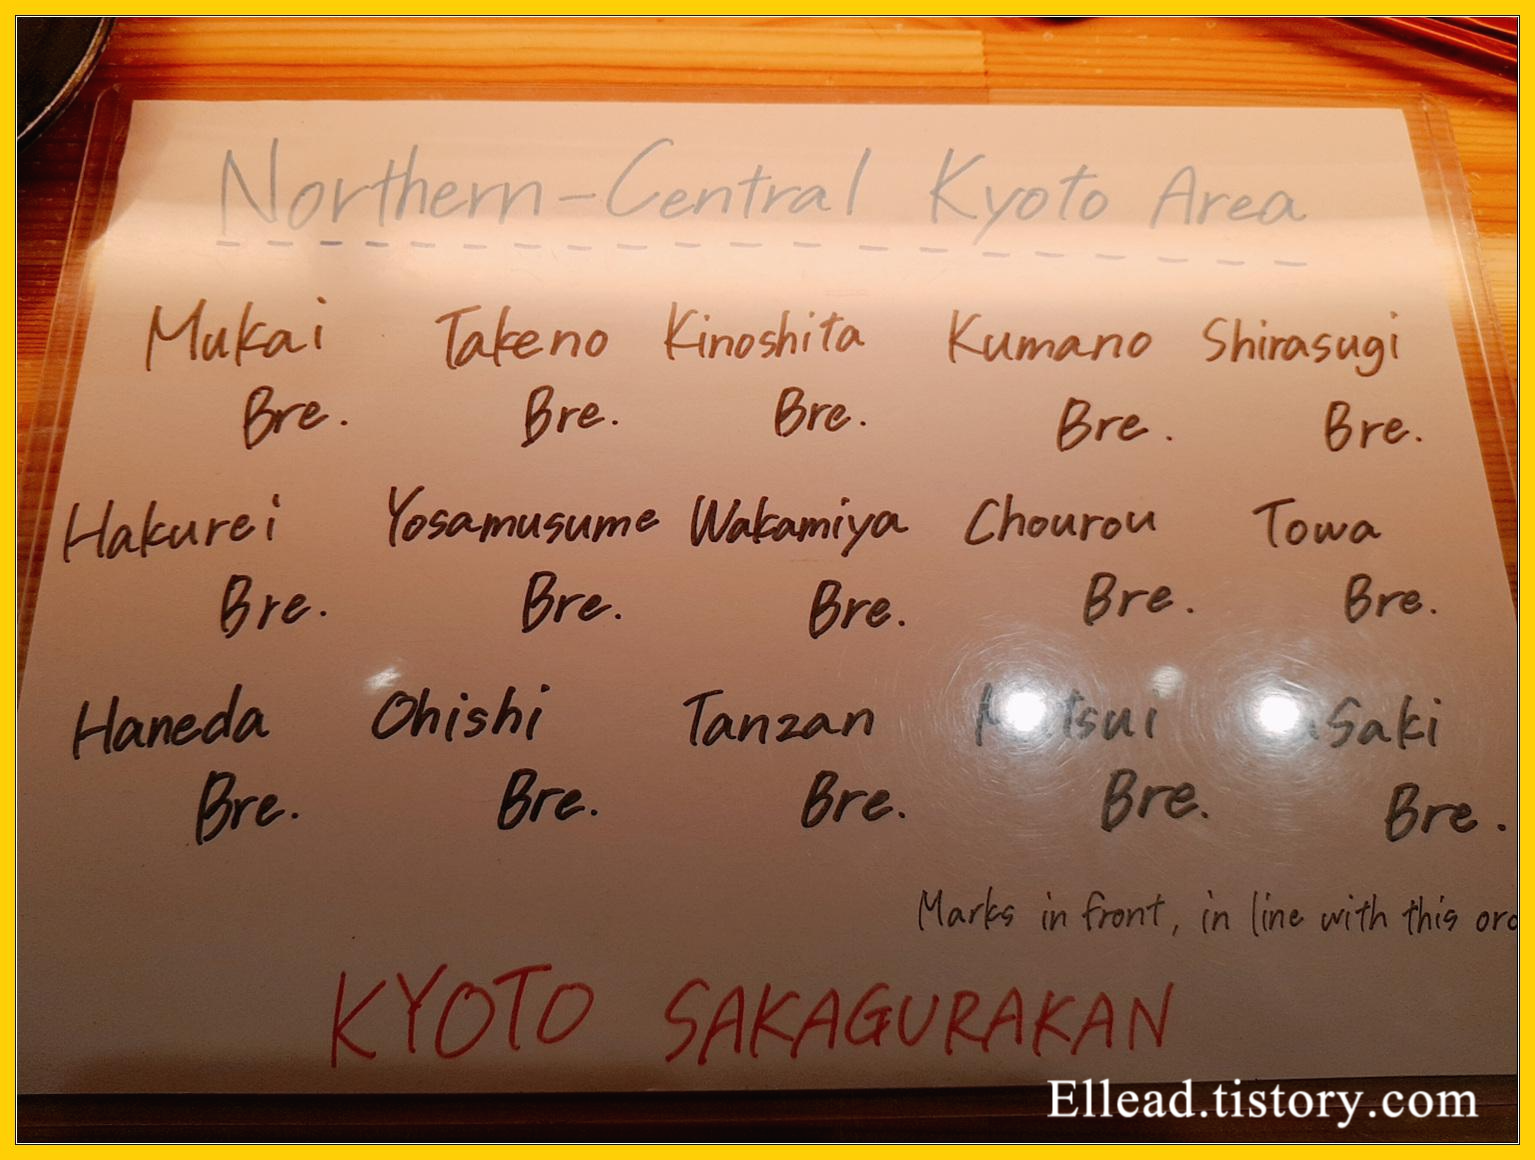 Northern-Central Kyoto Area
Mukai Takeno Kinoshita Kumano Shirasugi
Bre. Bre. Bre. Bre. Bre.
Hakurei Yosamusume Wakamiya Chourou Towa
Bre. Bre. Bre. Bre. Bre.
Haneda Ohishi Tanzan
Bre. Bre. Bre. Bre. Bre.
Marks in front, in line with this
KYOTO SAKAGURAKAN
Ellead.tistory.com